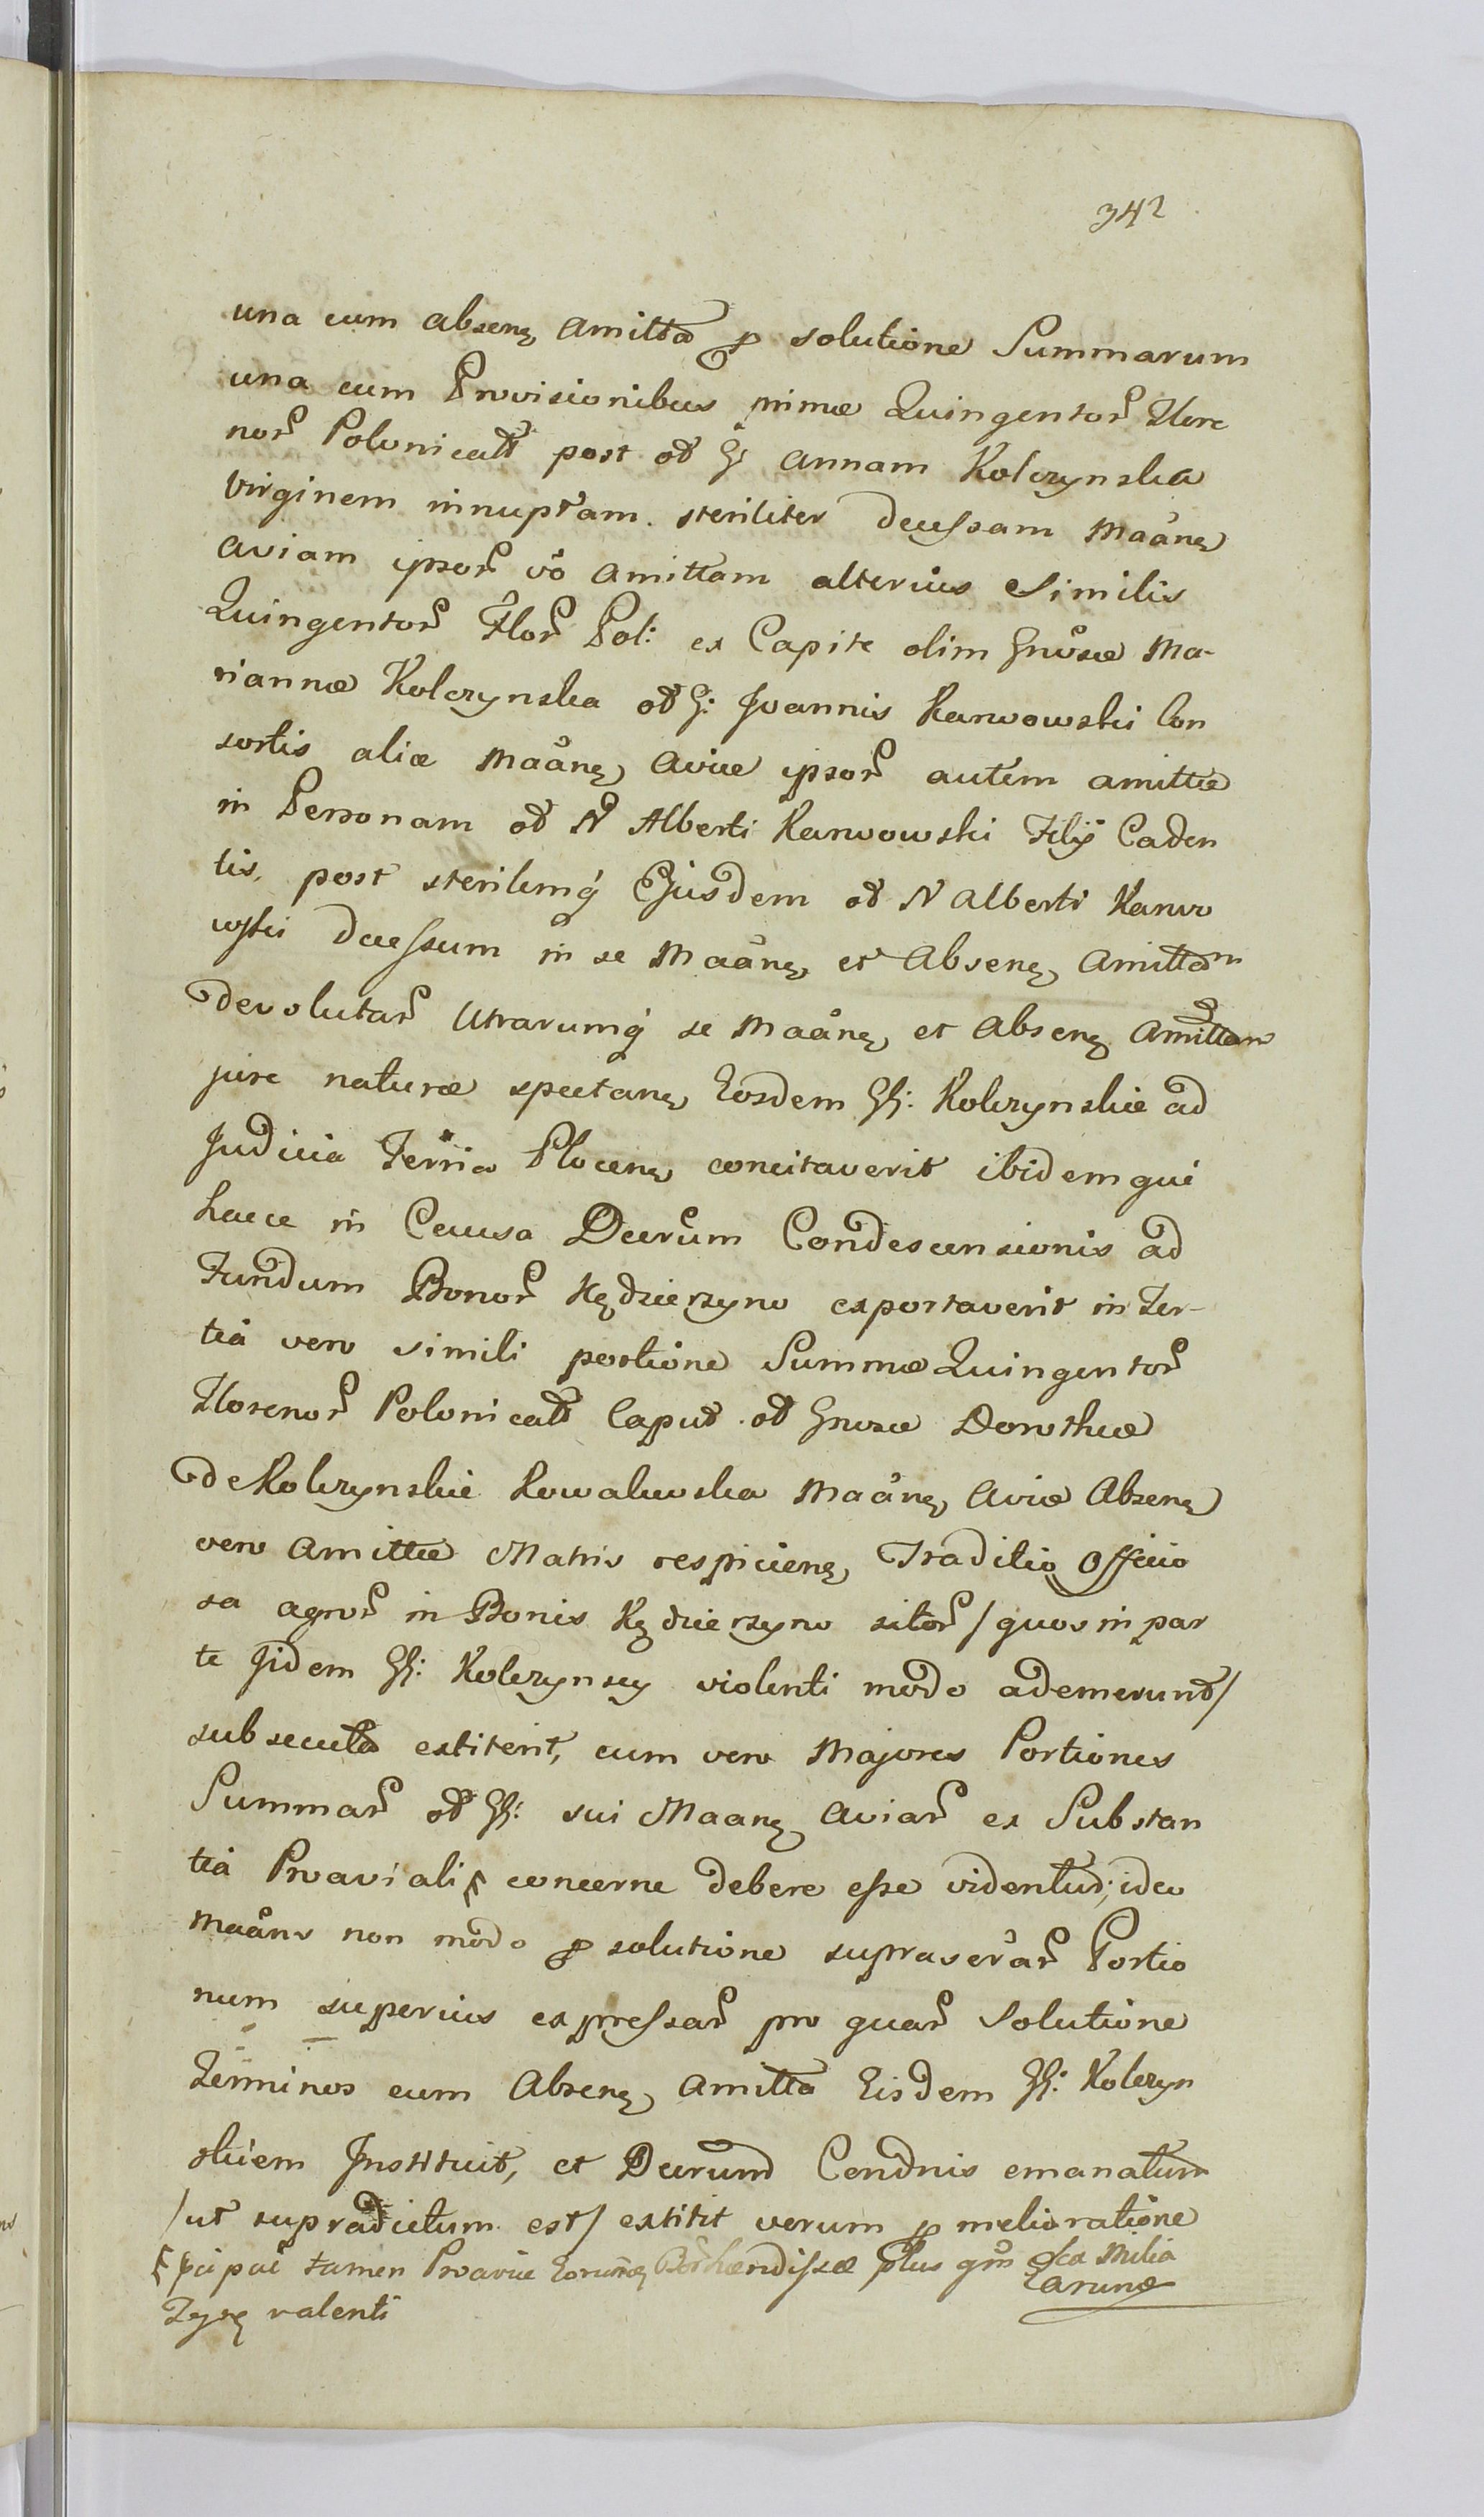 342
una cum absenę amitta p solutione Summarum
una cum Provisionibus primæ Quingentor Flore
nor Polonicalt post ol G Annam Kolczynska
Virginem innuptam steriliter decessam Maanę
Aviam ipsor vo Amittam alterius Similis
Quingentor Flor Pol: ex Capite olim Gnosæ Ma-
riannæ Kolczynska ol G: Joannis Karwowski Con
sortis aliæ Maanę Aviæ ipsor autem amittæ
in Personam ol N Alberti Karwowski Filij Caden
tis, post sterilemq Ejusdem ol N Alberti Karwo
wski decessum in se Maanę et Absenę Amittam
devolutar Utrarumq se Maanę et Absenę Amittam
jure naturæ spectanę Eosdem GG: Kolczynskie ad
Judicia Terria Plocenę concitaverit ibidemque
hacce in Causa Decrum Condescensionis ad
Fundum Bonor Kędzierzyno exportaverit in Ter-
tia vero simili portione Summæ Quingentor
Florenor Polonicalt Caput ol Gnosæ Dorotheæ
de Kolczynskie Kowalewska Maanę Aviæ Absenę
vero Amittæ Matris respicienę Traditio Officio
sa agror in Bonis Kędzierzyno sitor / quos in par
te Jidem GG: Kolczynscy violenti modo ademerunt /
subsecuta extiterit, cum vero Majores Portiones
Summar ol GG: sui Maanę Aviar ex Substan
tia Proaviali concerne debere esse videntur; ideo
Maans non modo p solutione supraserar Portio
num superius expressar pro quar Solutione
Terminos cum Absenę Amitta Eisdem GG: Kolczyn
skiem Instituit, et Decrum Condnis emanatum
/ ut supradictum est / extitit verum p melioratione
pcipue tamen Proaviæ plus qm sex Milia
Earunę
valenti